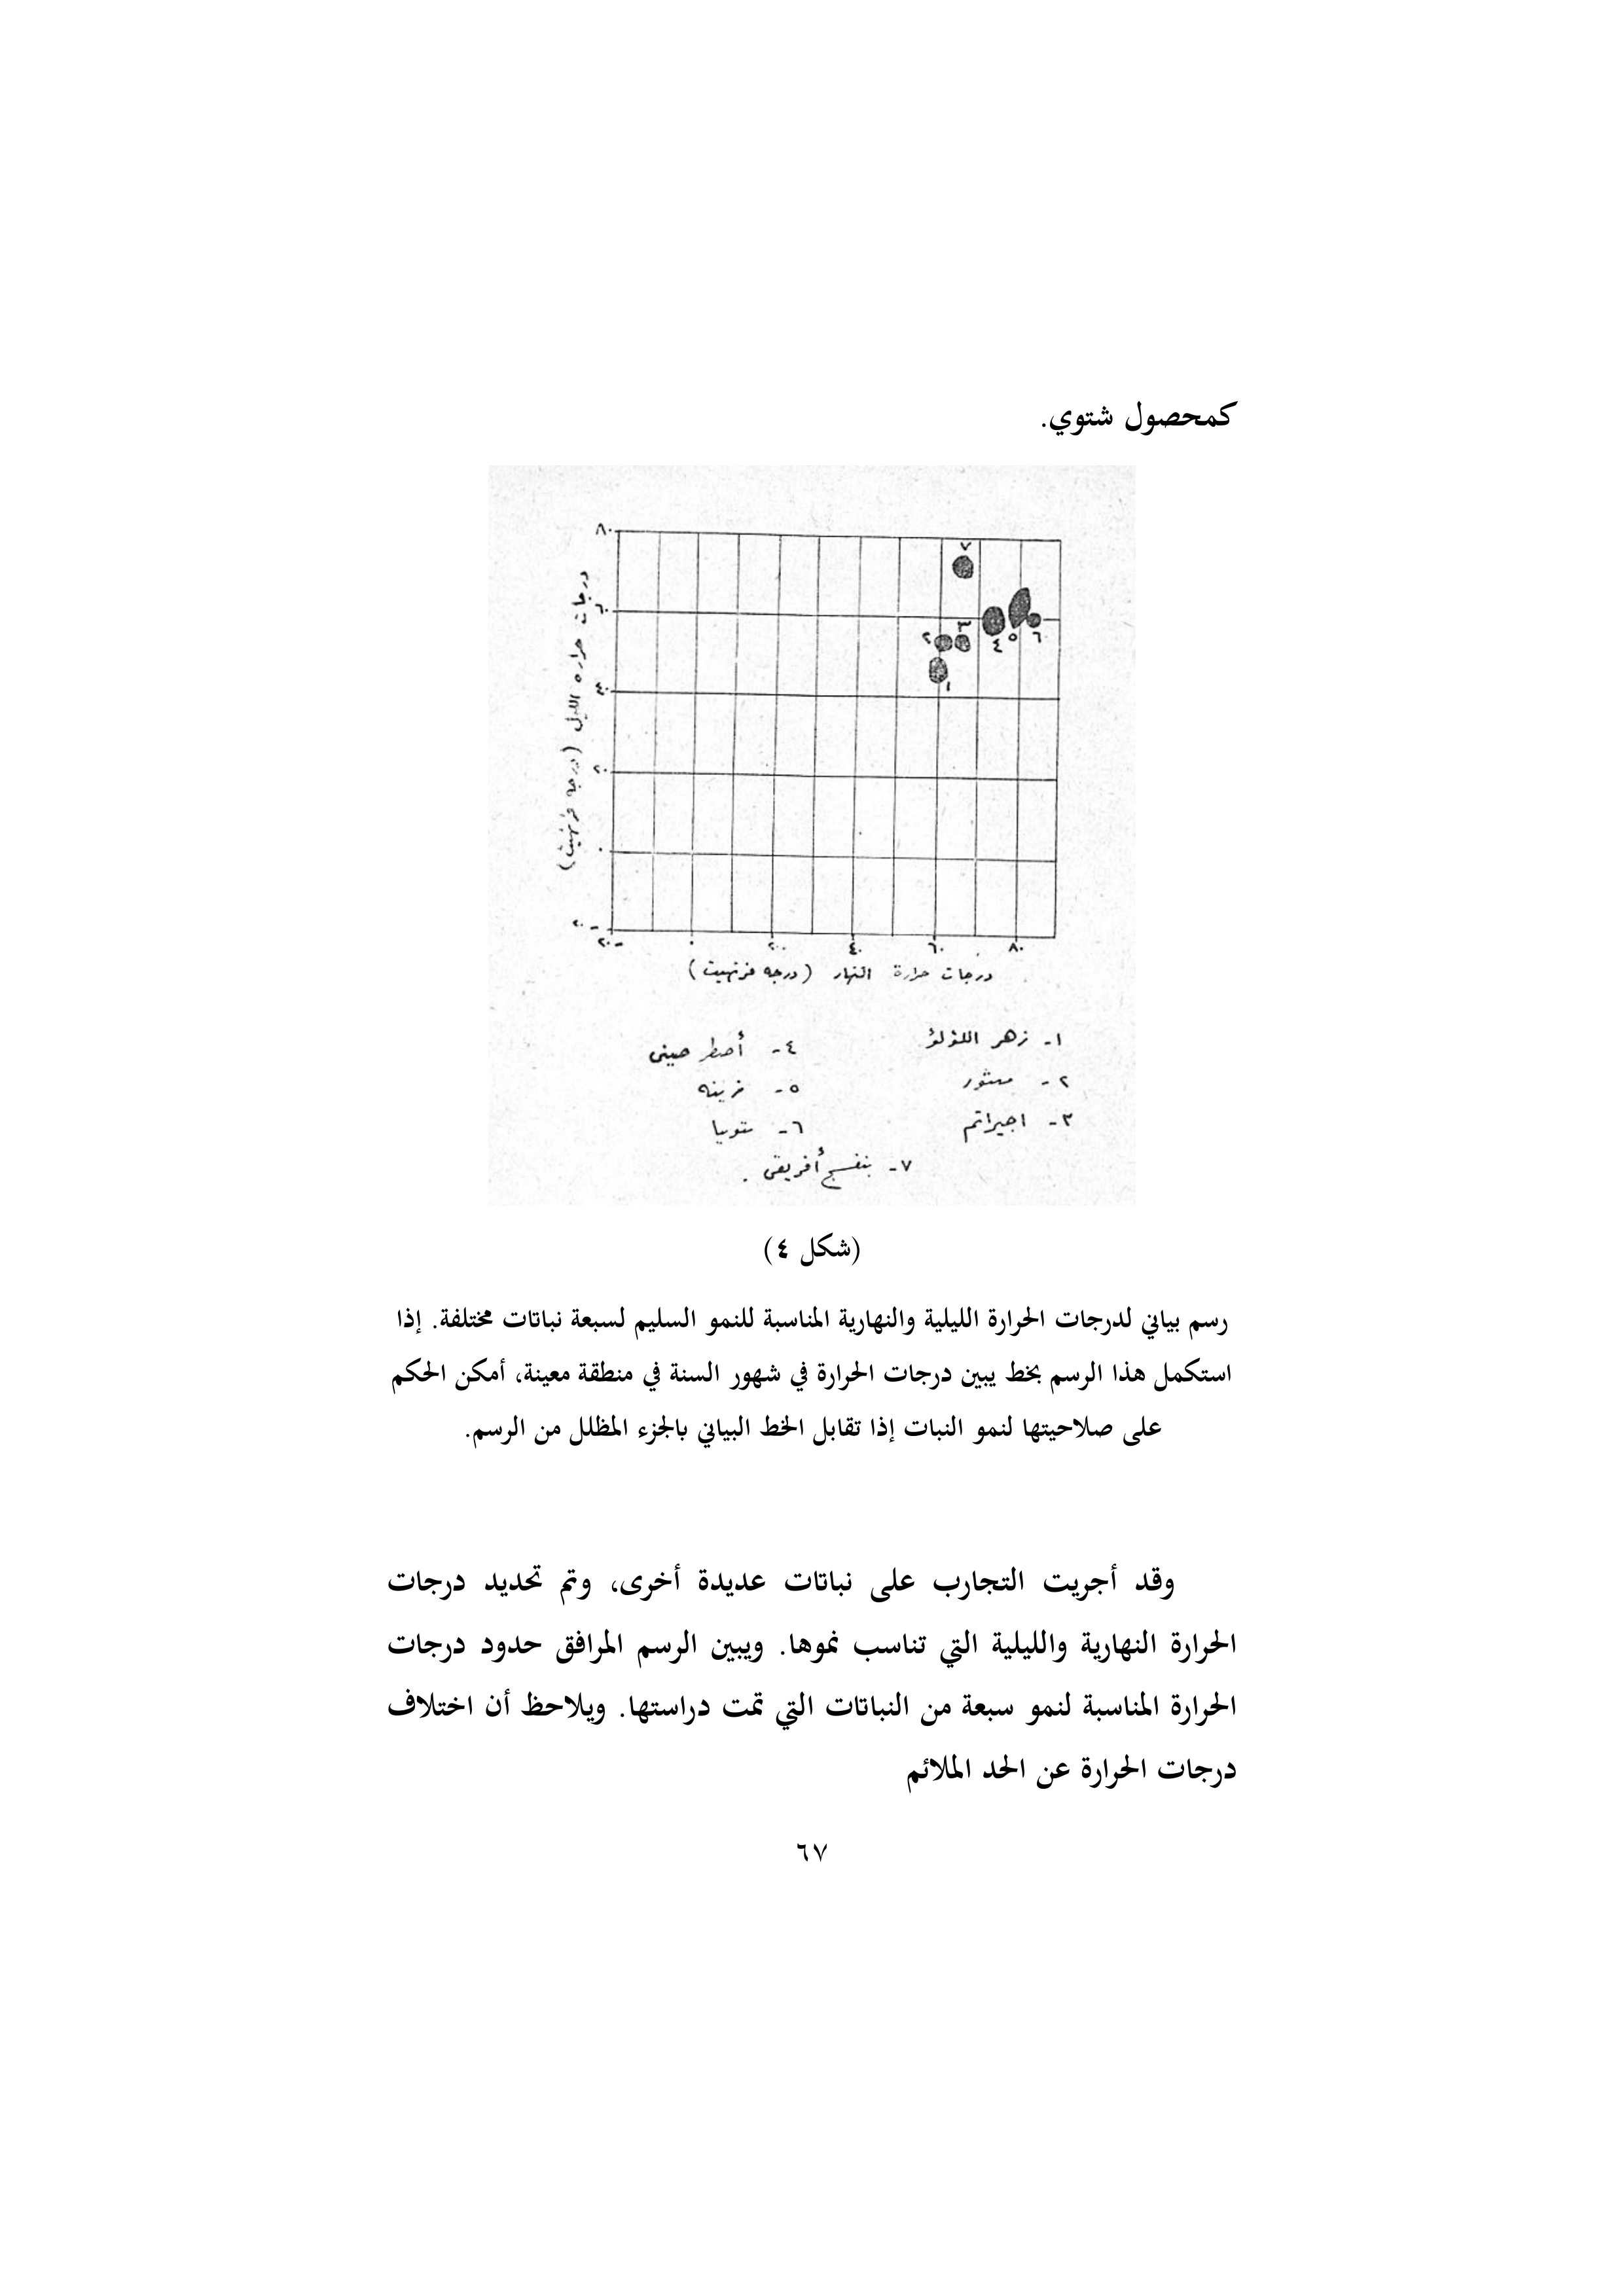 كمحصول شتوي.
٨٠
٦٠
٤٠
٢٠
٠
-٢٠
درجات حراره الليل (درجه فرنهيت)
-٢٠
٠
٢٠
٤٠
٦٠
٨٠
٧
٣
٢
١
٤
٥
٦
درجات حرارة النهار (درجه فرنهيت)
١- زهر اللؤلؤ
٤- أصطر صينى
٢- منثور
٥-
٣- اجيراتم
٦- بتونيا
٧- بنفسج أفريقى .
(شكل ٤)
رسم بياني لدرجات الحرارة الليلية والنهارية المناسبة للنمو السليم لسبعة نباتات مختلفة. إذا
استكمل هذا الرسم بخط يبين درجات الحرارة في شهور السنة في منطقة معينة، أمكن الحكم
على صلاحيتها لنمو النبات إذا تقابل الخط البياني بالجزء المظلل من الرسم.
وقد أجريت التجارب على نباتات عديدة أخرى، وتم تحديد درجات
الحرارة النهارية والليلية التي تناسب نموها. ويبين الرسم المرافق حدود درجات
الحرارة المناسبة لنمو سبعة من النباتات التي تمت دراستها. ويلاحظ أن اختلاف
درجات الحرارة عن الحد الملائم
٦٧